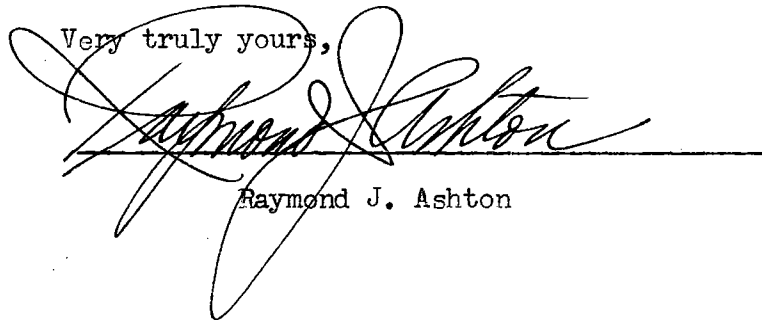 Very truly yours,
Raymond J Ashton
Raymond J. Ashton